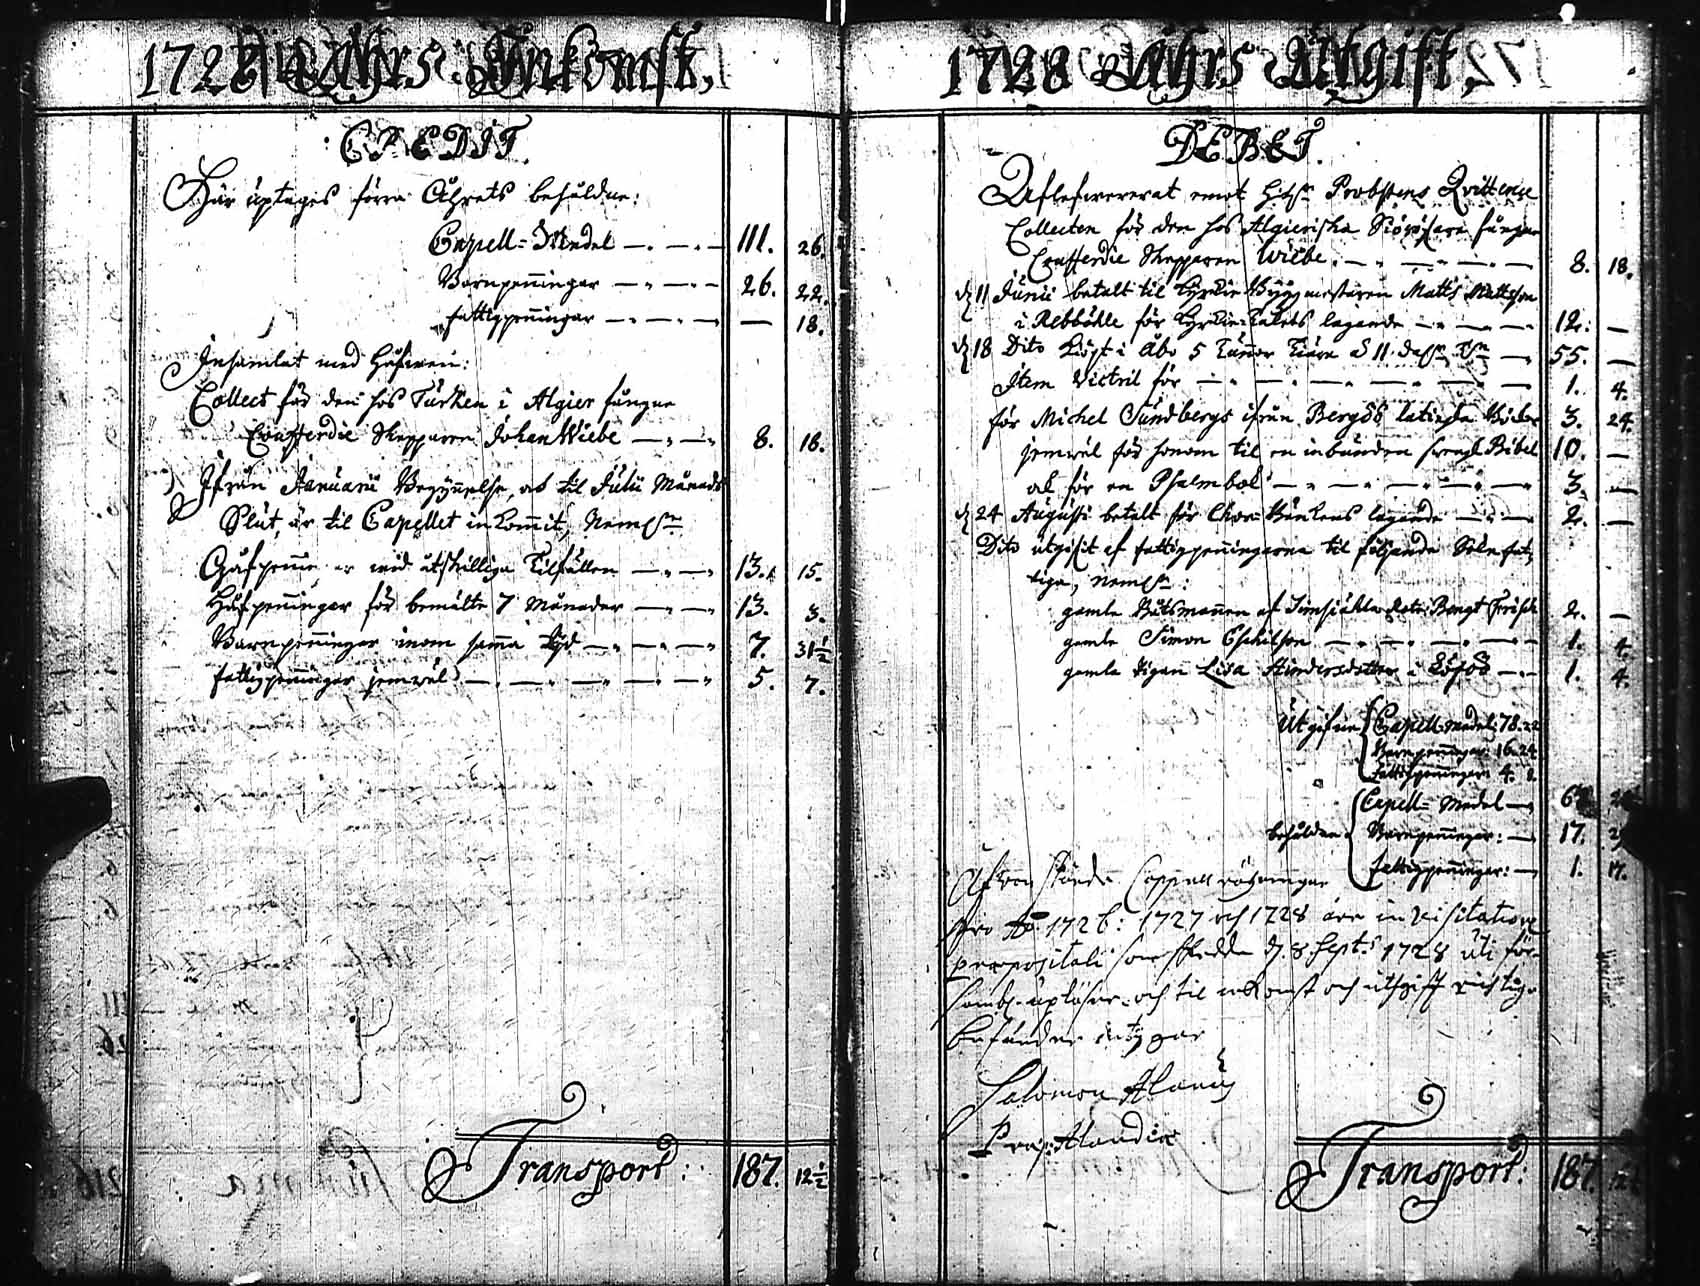 1728 Åhrs Inkomst,
CREDIT.
Här uptages förra Åhrets behåldne:
Capell-Medel 111. 26.
Barnpenningar 26. 22.
fattigpenningar — 18.
Insamlat med Håfwen:
Collect för den hos Turken i Algier fångne
Coufferdie Skepparen Johan Wiebe 8. 18.
Ifrån Januarii Begynnelse, at til Julii Månads
Slut, är til Capellet inkommit, Nemln
Gåfpenningar wid åtskillige Tilfällen 13. 15.
Håfpenningar för bemälte 7 Månader 13. 3.
Barnpenningar inom samma Tijd 7. 31½
fattigpenningar jemwäl 5. 7.
Transport: 187. 12½
1728 Åhrs Utgift,
DEBET.
Aflefwererat emot Probstens Qvittence
Collecten för den hos Algieriska Siöröfare fångne
Coufferdie Skepparen Wiebe 8. 18.
d 11 Junii betalt til Kyrkie Byggmästaren Matts Mattsson
i Rebböhle för Kyrkie-Takets lagande 12. —
d 18 Dito Köpt i Åbo 5 Tunnor Tiära 55. —
Item Victril för 1. 4.
för Michel Sundbergs ifrån Bergöö latinska Böcker 3. 24.
jemwäl för honom til en inbunden Bibel 10. —
ok för en Psalmbok 3. —
d 24 Augusti betalt för Bänkens lagande 2. —
Dito utgifit af fattigpenningarna til följande Siuke fat-
tige, Nemln:
gamle Båtsmannen af Bengt Frisk 2. —
gamle Simon Eskilson 1. 4.
gamle Pigan Lisa Hindersdotter i 1. 4.
Utgifne Capell-Medel: 78. 22
Barnpenningar: 16. 24
fattigpenningar: 4. 8.
Capell-Medel
behåldne Barnpenningar: 17.
fattigpenningar: 1. 17.
Capell räkningar
pro Ao 1726: 1727 och 1728 äro in visitatione
præpositali som skedde d. 8 Septr 1728 uti för-
samb- upläsne och til inkomst och utgifft richtige
befundne
Salomon Alanus
Præp: Alandiæ
Transport: 187.